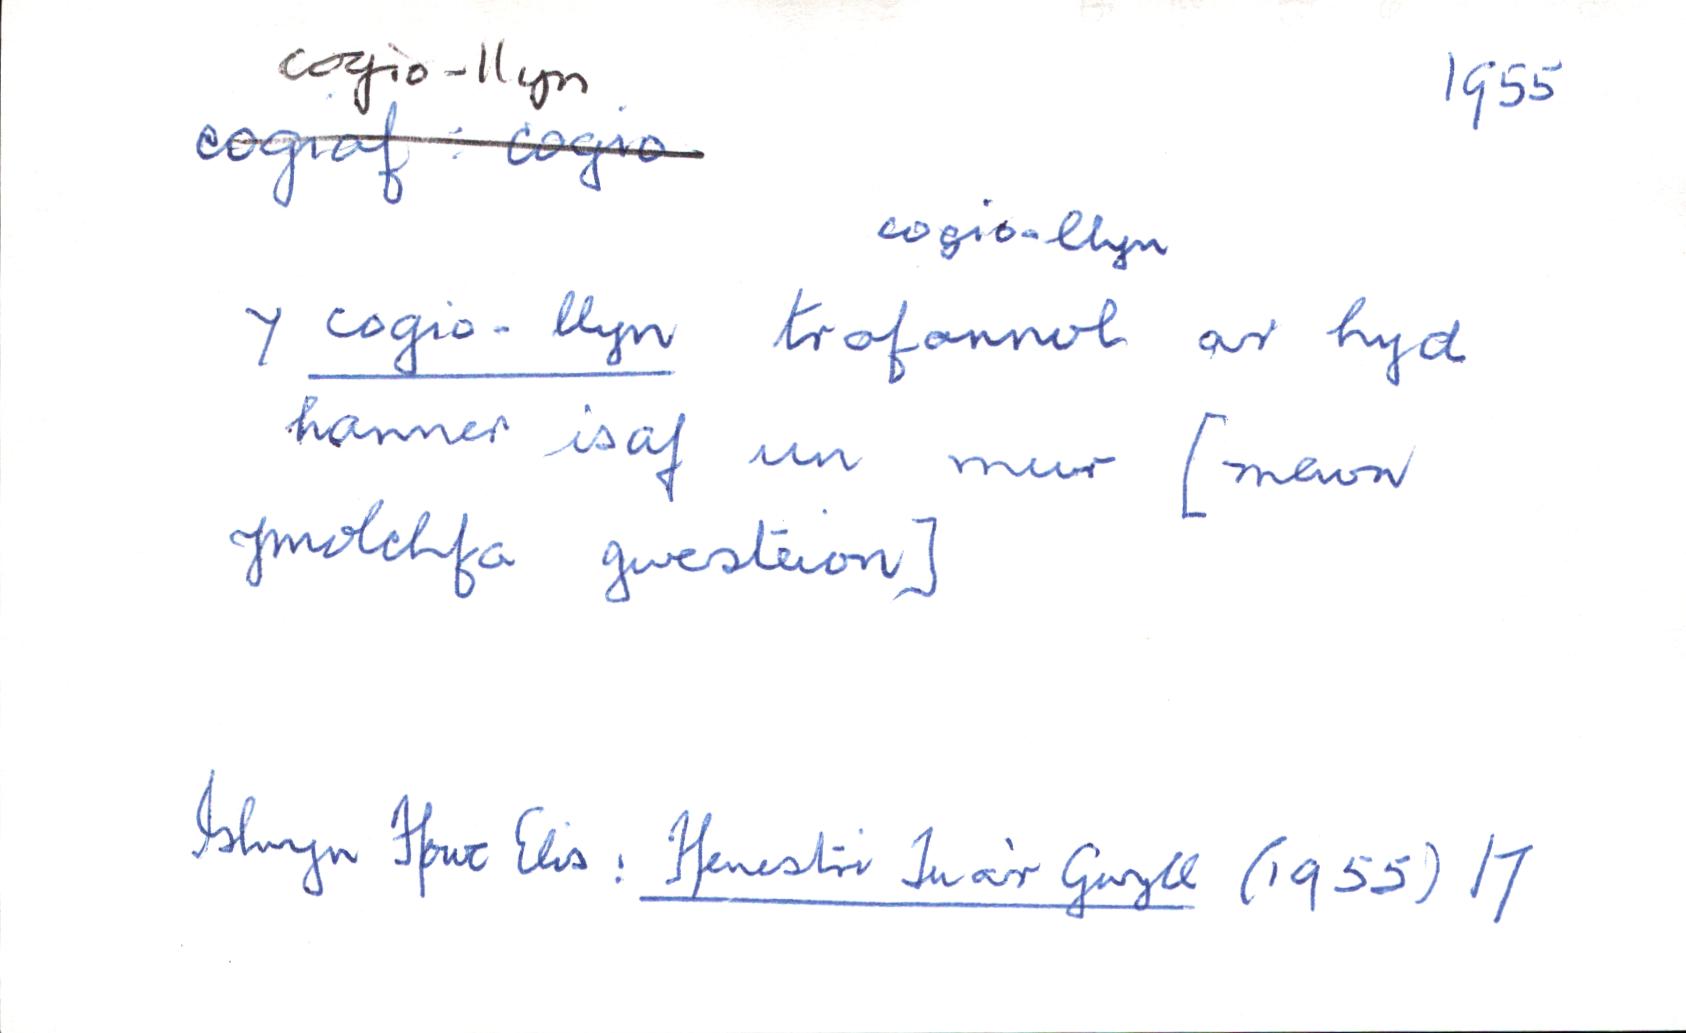 cogio-llyn
1955
cogiaf : cogio
cogio-llyn
y cogio-llyn trofannol ar hyd
hanner isaf un mur [mewn
ymolchfa gwesteion]
Islwyn Ffowc Elis : Ffenestri Tua'r Gwyll (1955) 17